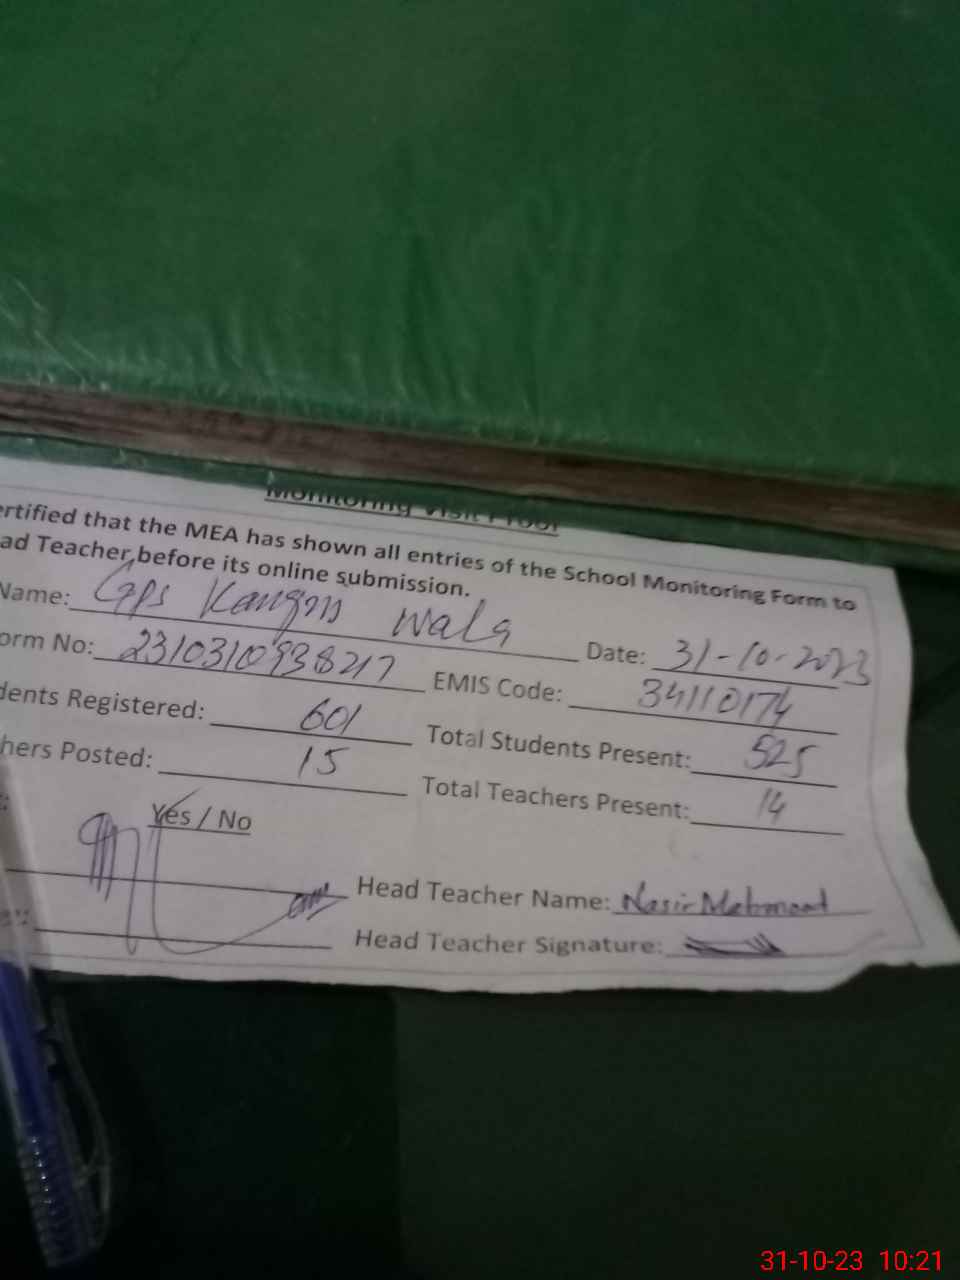 Monitoring Visit Proof
ertified that the MEA has shown all entries of the School Monitoring Form to
ad Teacher, before its online submission.
Name: GPS Kangni wala Date: 31-10-2023
orm No: 2310310938217 EMIS Code: 34110174
dents Registered: 601 Total Students Present: 525
hers Posted: 15 Total Teachers Present: 14
Yes / No
Head Teacher Name: Nasir Mehmood
Head Teacher Signature:
31-10-23 10:21